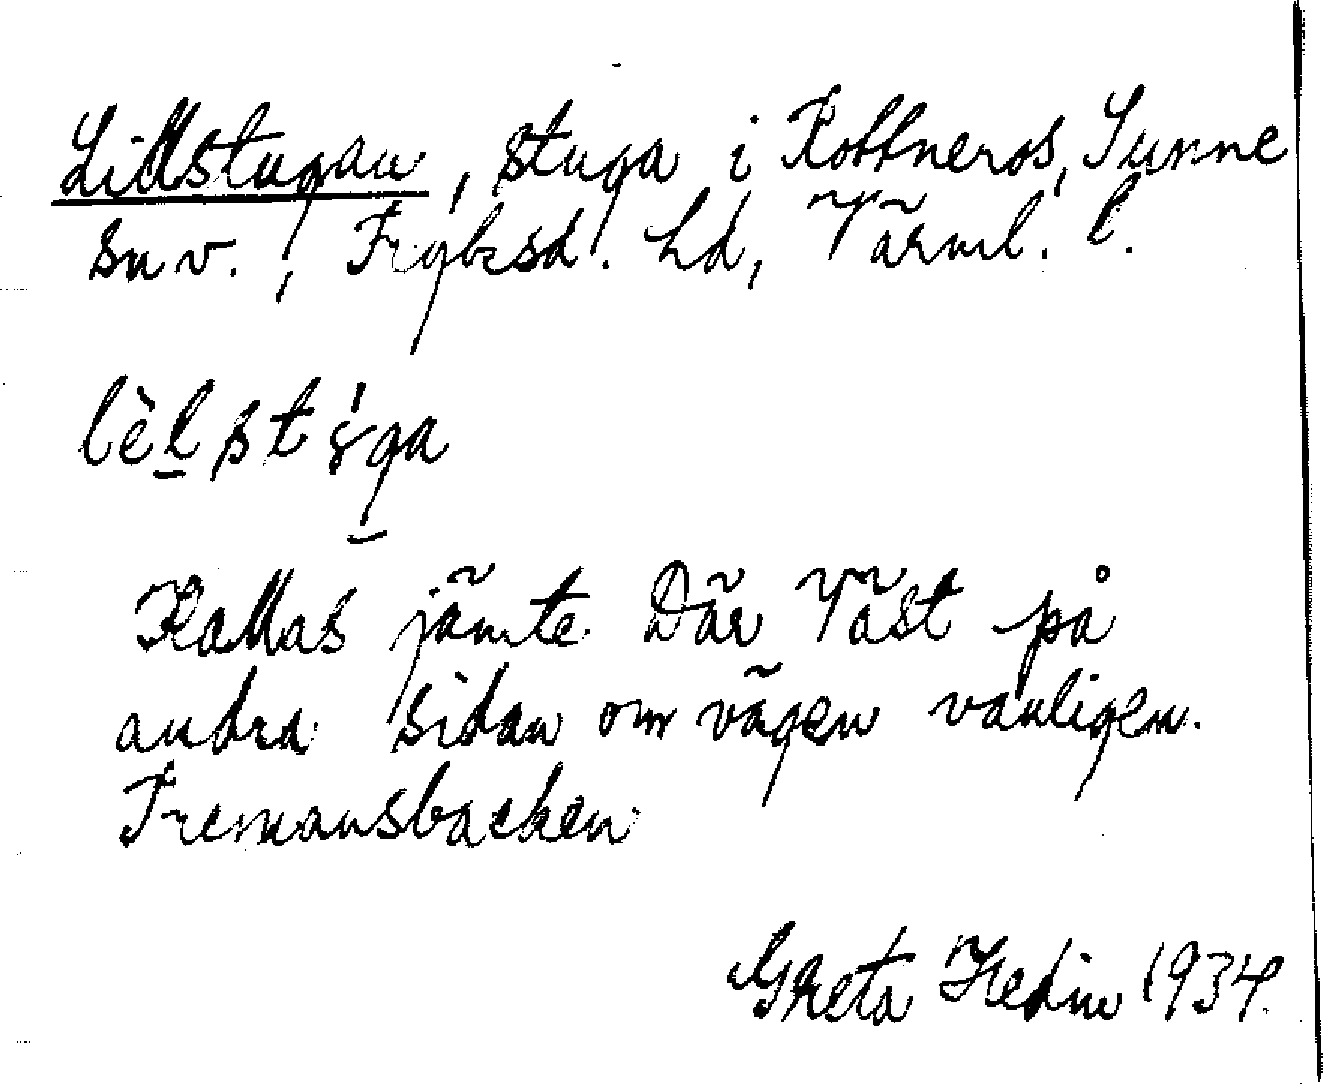 Lillstugan, stuga i Rottneros, Sunne
sn v., Fryksd. hd, Värml. l.
lèlstýga
Kallas jämte Där Väst på
andra sidan om vägen vanligen
Fremansbacken
Greta Hedin 1934.